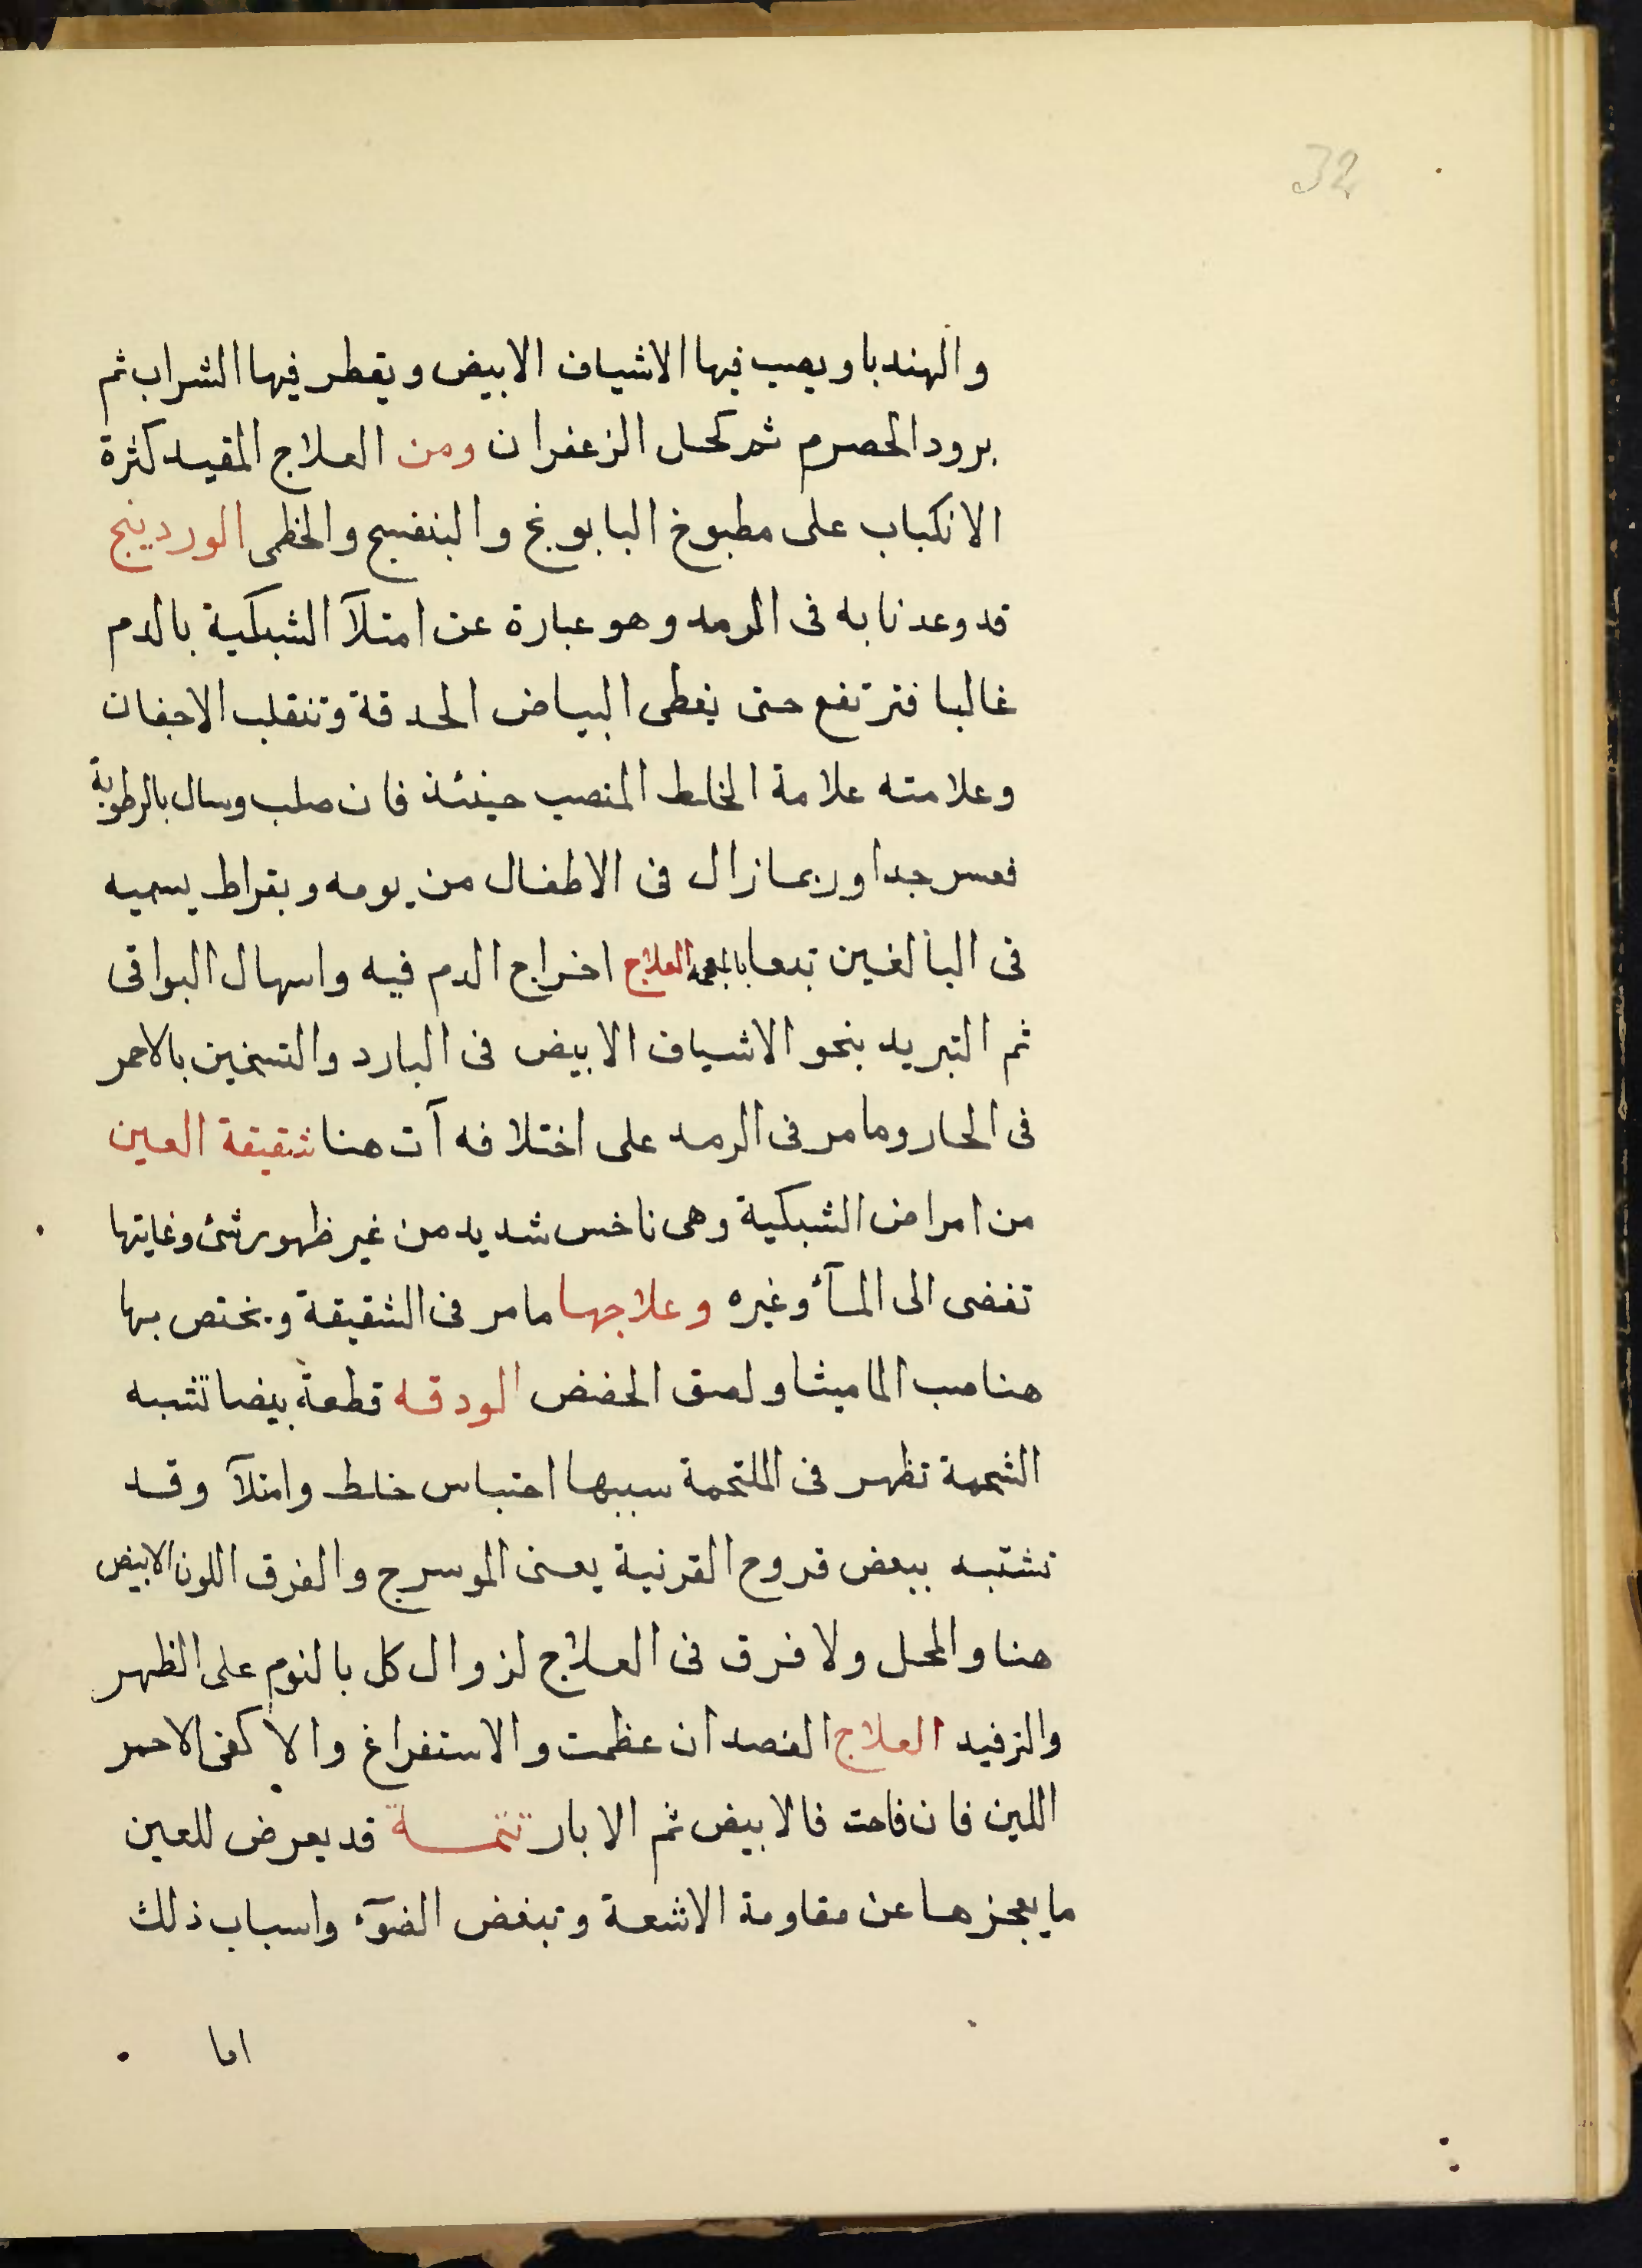 32
والهندبا ويصب فيها الاشياف الابيض ويقطر فيها الشراب ثم
برود الحصرم ثم كحل الزعفران ومن العلاج المقيد كثرة
الانكباب على مطبوخ البابونج والبنفسج والخطمى الوردينج
قد وعدنا به فى الرمد وهو عبارة عن امتلآ الشبكية بالدم
غالبا فترتفع حتى يغطى البياض الحدقة وتنقلب الاجفان
وعلامته علامة الخلط المنصب حينئذ فان صلب وسال بالرطوبة
فعسر جدا وربما زال فى الاطفال من يومه وبقراط يسميه
فى البالغين تدعا العلاج اخراج الدم فيه واسهال البواقى
ثم التبريد بنحو الاشياف الابيض فى البارد والتسخين بالاحمر
فى الحار وما مر فى الرمد على اختلافه آت هنا شقيقة العين
من امراض الشبكية وهى ناخس شديد من غير ظهور شئ وغايتها
تفضى الى المآء وغيره وعلاجها ما مر فى الشقيقة ويختص بها
هنا صب الماميثا ولصق الحضض الودقه قطعة بيضا تشبه
الشحمة تظهر فى الملتحمة سببها احتباس خلط وامتلآ وقد
تشتبه ببعض قروح القرنية يعنى الموسرج والفرق اللون الابيض
هنا والمحل ولا فرق فى العلاج لزوال كل بالنوم على الظهر
والترفيد العلاج الفصد ان عظمت والاستفراغ والا كفى الاحمر
اللين فان فاحت فالابيض ثم الابار تتمة قد يعرض للعين
ما يعجزها عن مقاومة الاشعة وتبغض الضوء واسباب ذلك
اما